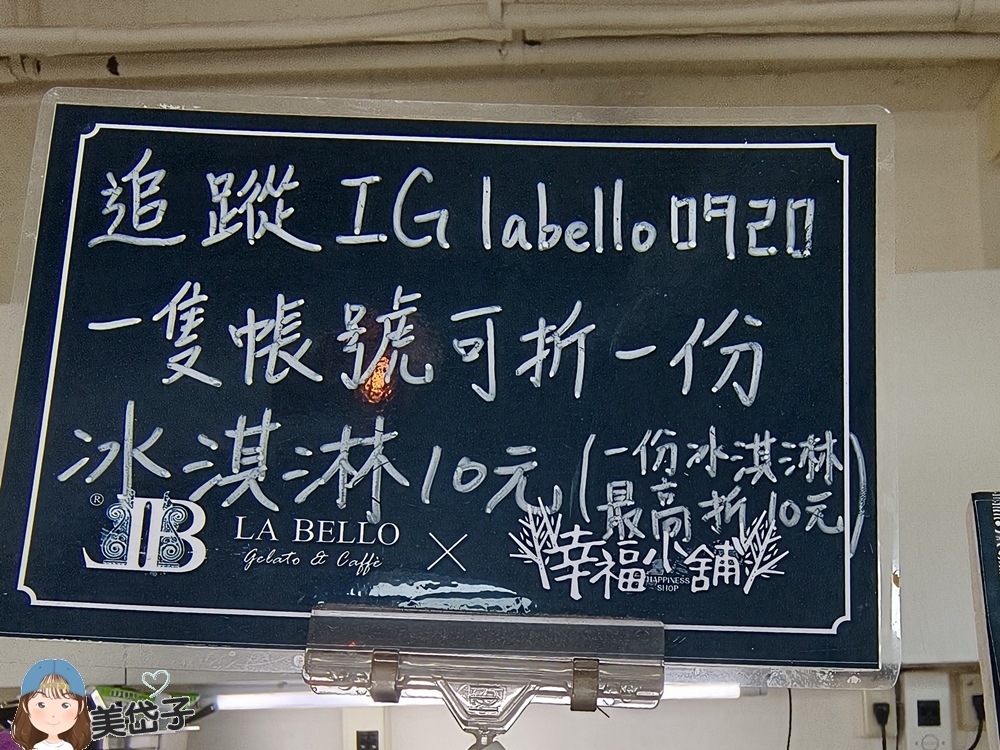 追蹤IG labello0920
一隻帳號可折一份
冰淇淋10元。(一份冰淇淋
最高折10元)
® JB LA BELLO
Gelato & Caffè
×
幸福小舖
HAPPINESS
SHOP
美岱子